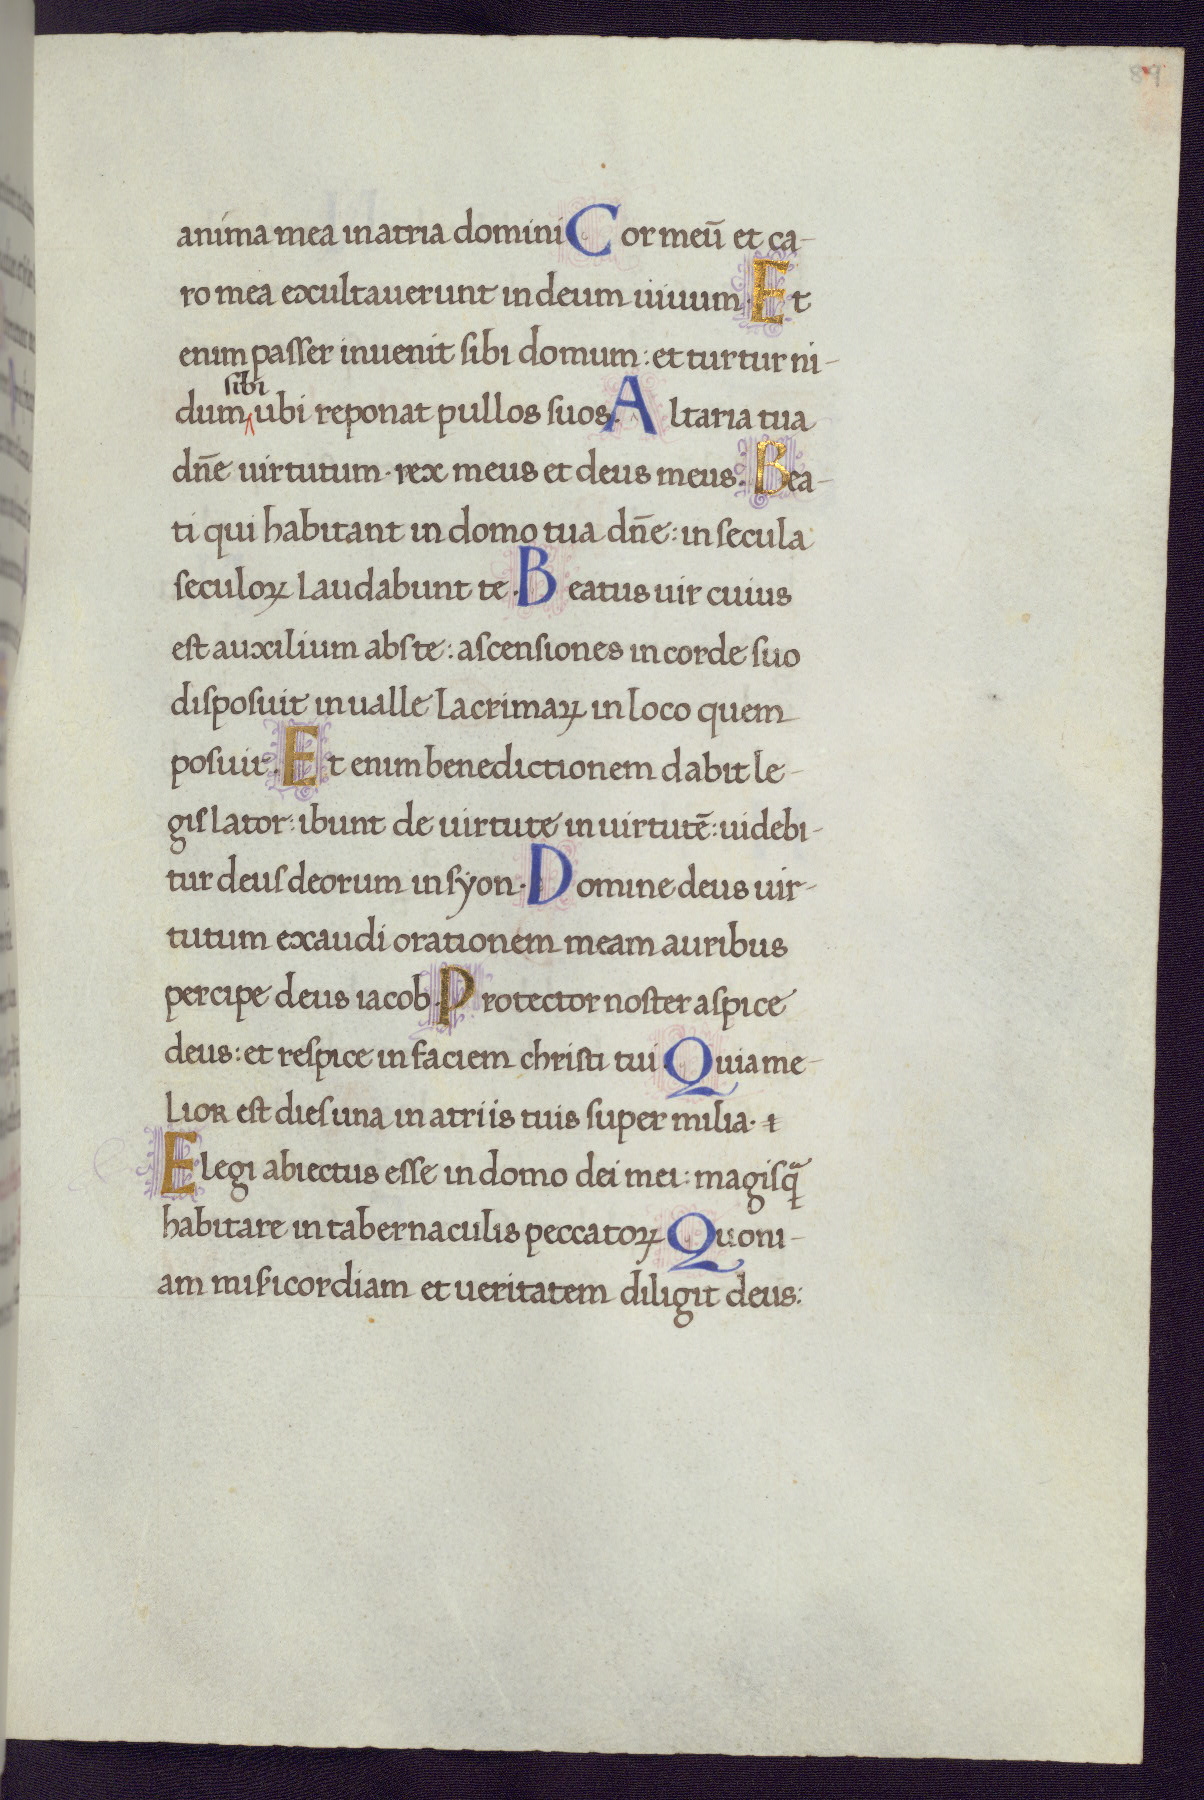 89
anima mea in atria domini Cor meū et ca-
ro mea exultauerunt in deum uiuum. Et
enim passer inuenit sibi domum: et turtur ni-
sibi
dum ubi reponat pullos suos. Altaria tua
dn̄e uirtutum. rex meus et deus meus. Bea-
ti qui habitant in domo tua dn̄e: in secula
seculoꝝ laudabunt te. Beatus uir cuius
est auxilium abs te: ascensiones in corde suo
disposuit in ualle lacrimaꝝ in loco quem
posuit. Et enim benedictionem dabit le-
gislator: ibunt de uirtute in uirtutē: uidebi-
tur deus deorum in syon. Domine deus uir-
tutum exaudi orationem meam auribus
percipe deus iacob. Protector noster aspice
deus: et respice in faciem christi tui. Quia me-
lior est dies una in atriis tuis super milia.
Elegi abiectus esse in domo dei mei: magis qᷓ
habitare in tabernaculis peccatoꝝ Quoni-
am mīsericordiam et ueritatem diligit deus: